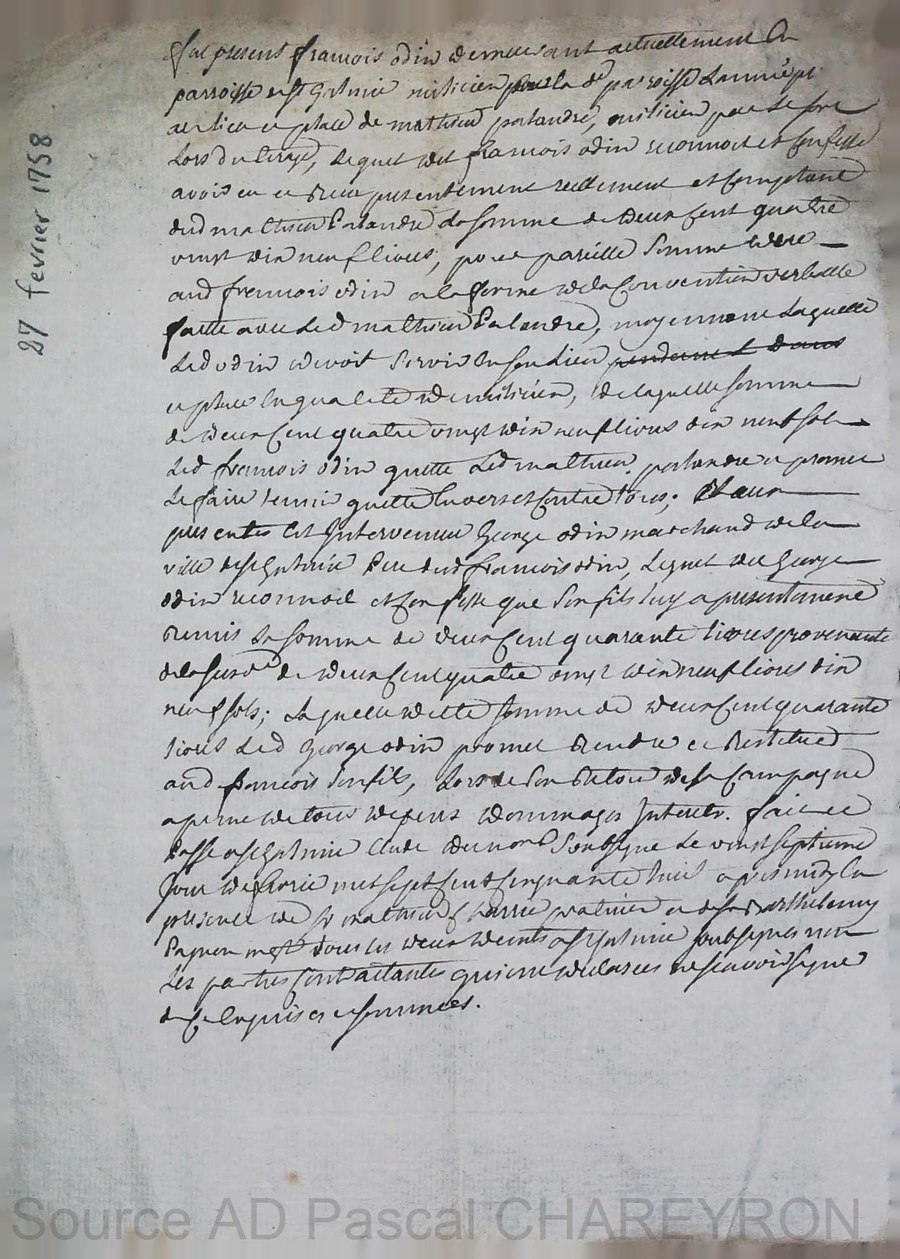 27 fevrier 1758
Fut present francois odin demeurant actuellement En
parroisse de st Galmie milicien pour la de parroisse L'année
au lieu et place de mathieu parlandre, milicien par Le sort
Lors du tirage, Lequel dit francois odin reconnoit et confesse
avoir eu et Receu presentement reellement et comptant
dud mathieu Parlandre La somme de deux Cent quatre
vingt dix neuf livres, pour pareille somme deue
aud francois odin a la forme de la Convention verballe
faitte avec Led mathieu Parlandre, moyennant Laquelle
Led odin devoit servir En son Lieu pendant L dans
et place En qualité de milicien, de laquelle somme
de deux Cent quatre vingt dix neuf livres dix neuf sols
Led francois odin quitte Led mathieu parlandre et promet
Le faire tenir quitte Envers et Contre tous; Et aux
presentes Est Intervenu George odin marchand de la
ville de st Galmie Pere dud francois odin, Lequel dit George
odin reconnoit et Confesse que son fils luy a presentement
Remis La somme de deux Cent quarante livres provenante
de la susde de deux Cent quatre vingt dix neuf livres dix
neuf sols; Laquelle ditte somme de deux Cent quarante
livres Led George odin promet Rendre et Restituer
aud francois son fils, Lors de son Retour de la Campagne
a peine de tous depens dommages Interets. fait et
Passé a st Galmie Etude du nore soubsigné Le vingt septieme
Jour de fevrie mil sept cent cinquante huit apres midy En
presence de sr mathieu et de sr Barthelemy
tous les deux de st Galmie soubsignes non
Les parties Contractantes qui ont declarées ne scavoir signer
de Ce Enquises et sommées.
Source AD Pascal CHAREYRON